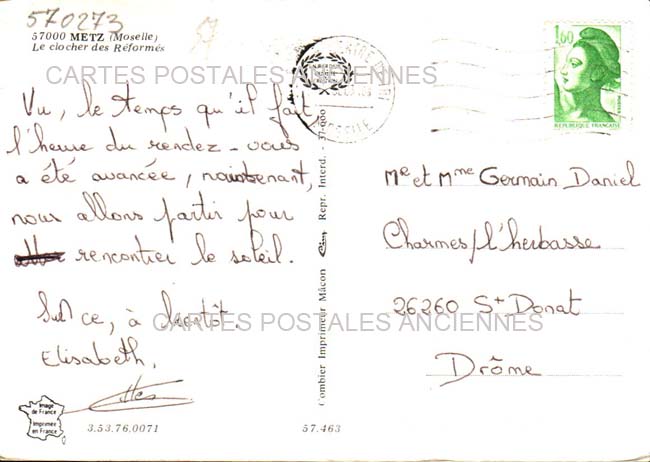 570273
57000 METZ (Moselle)
Le clocher des Réformés
CARTES POSTALES ANCIENNES
1,60
REPUBLIQUE FRANÇAISE
MOSELLE
Vu, le temps qu'il fait,
l'heure du rendez-vous
a été avancée, maintenant,
nous allons partir pour
rencontrer le soleil.
Sur ce, à bientôt.
Elisabeth.
Mr et Mme Germain Daniel
Charmes/l'herbasse
26260 St Donat
Drôme
CARTES POSTALES ANCIENNES
Combier Imprimeur Mâcon Cim Repr. Interd. - 37-000
Image
de France
Imprimée
en France
3.53.76.0071
57.463